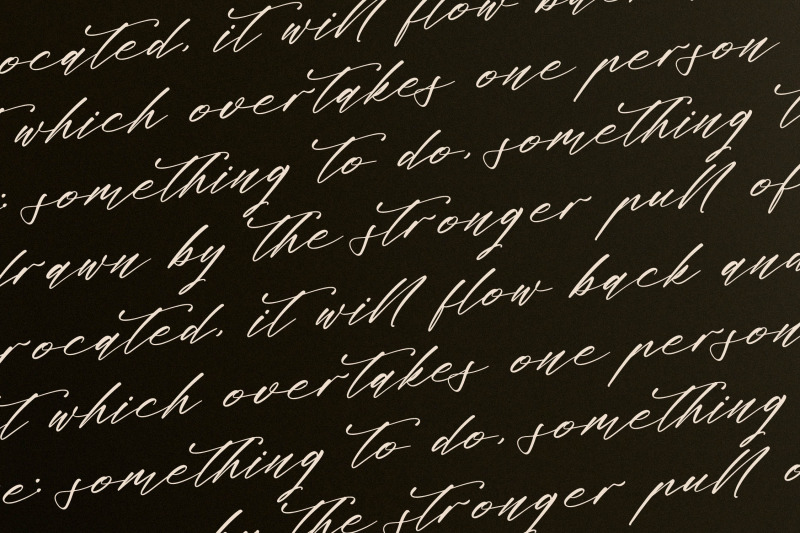 ocated, it will flow bac
t which overtakes one person
: something to do, something t
drawn by the stronger pull of
rocated, it will flow back and
it which overtakes one person
e: something to do, something
by the stronger pull o